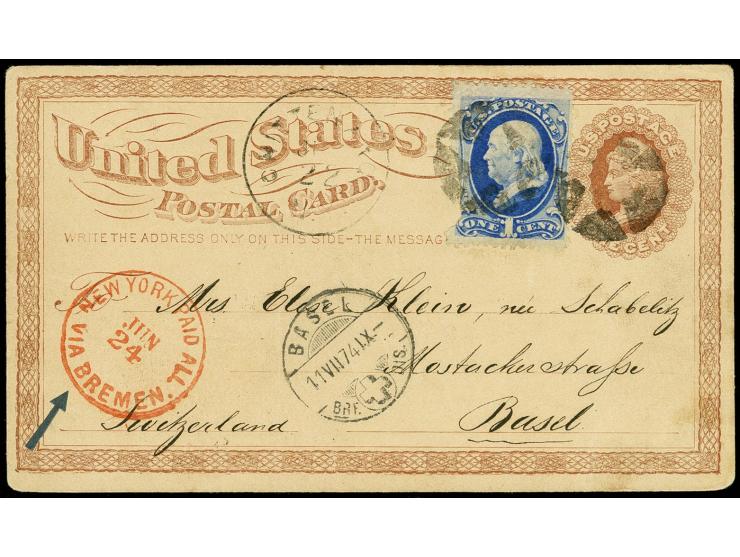 United States
POSTAL CARD.
WRITE THE ADDRESS ONLY ON THIS SIDE–THE MESSAG
U.S. POSTAGE
ONE 1 CENT
U.S. POSTAGE
CENT
22
NEW YORK PAID ALL.
JUN
24
VIA BREMEN.
BASEL
11 VII 74 IX–
BRF. DIS.
Mrs. Elise Klein, née Schabelitz
Mostackerstraße
Basel
Switzerland